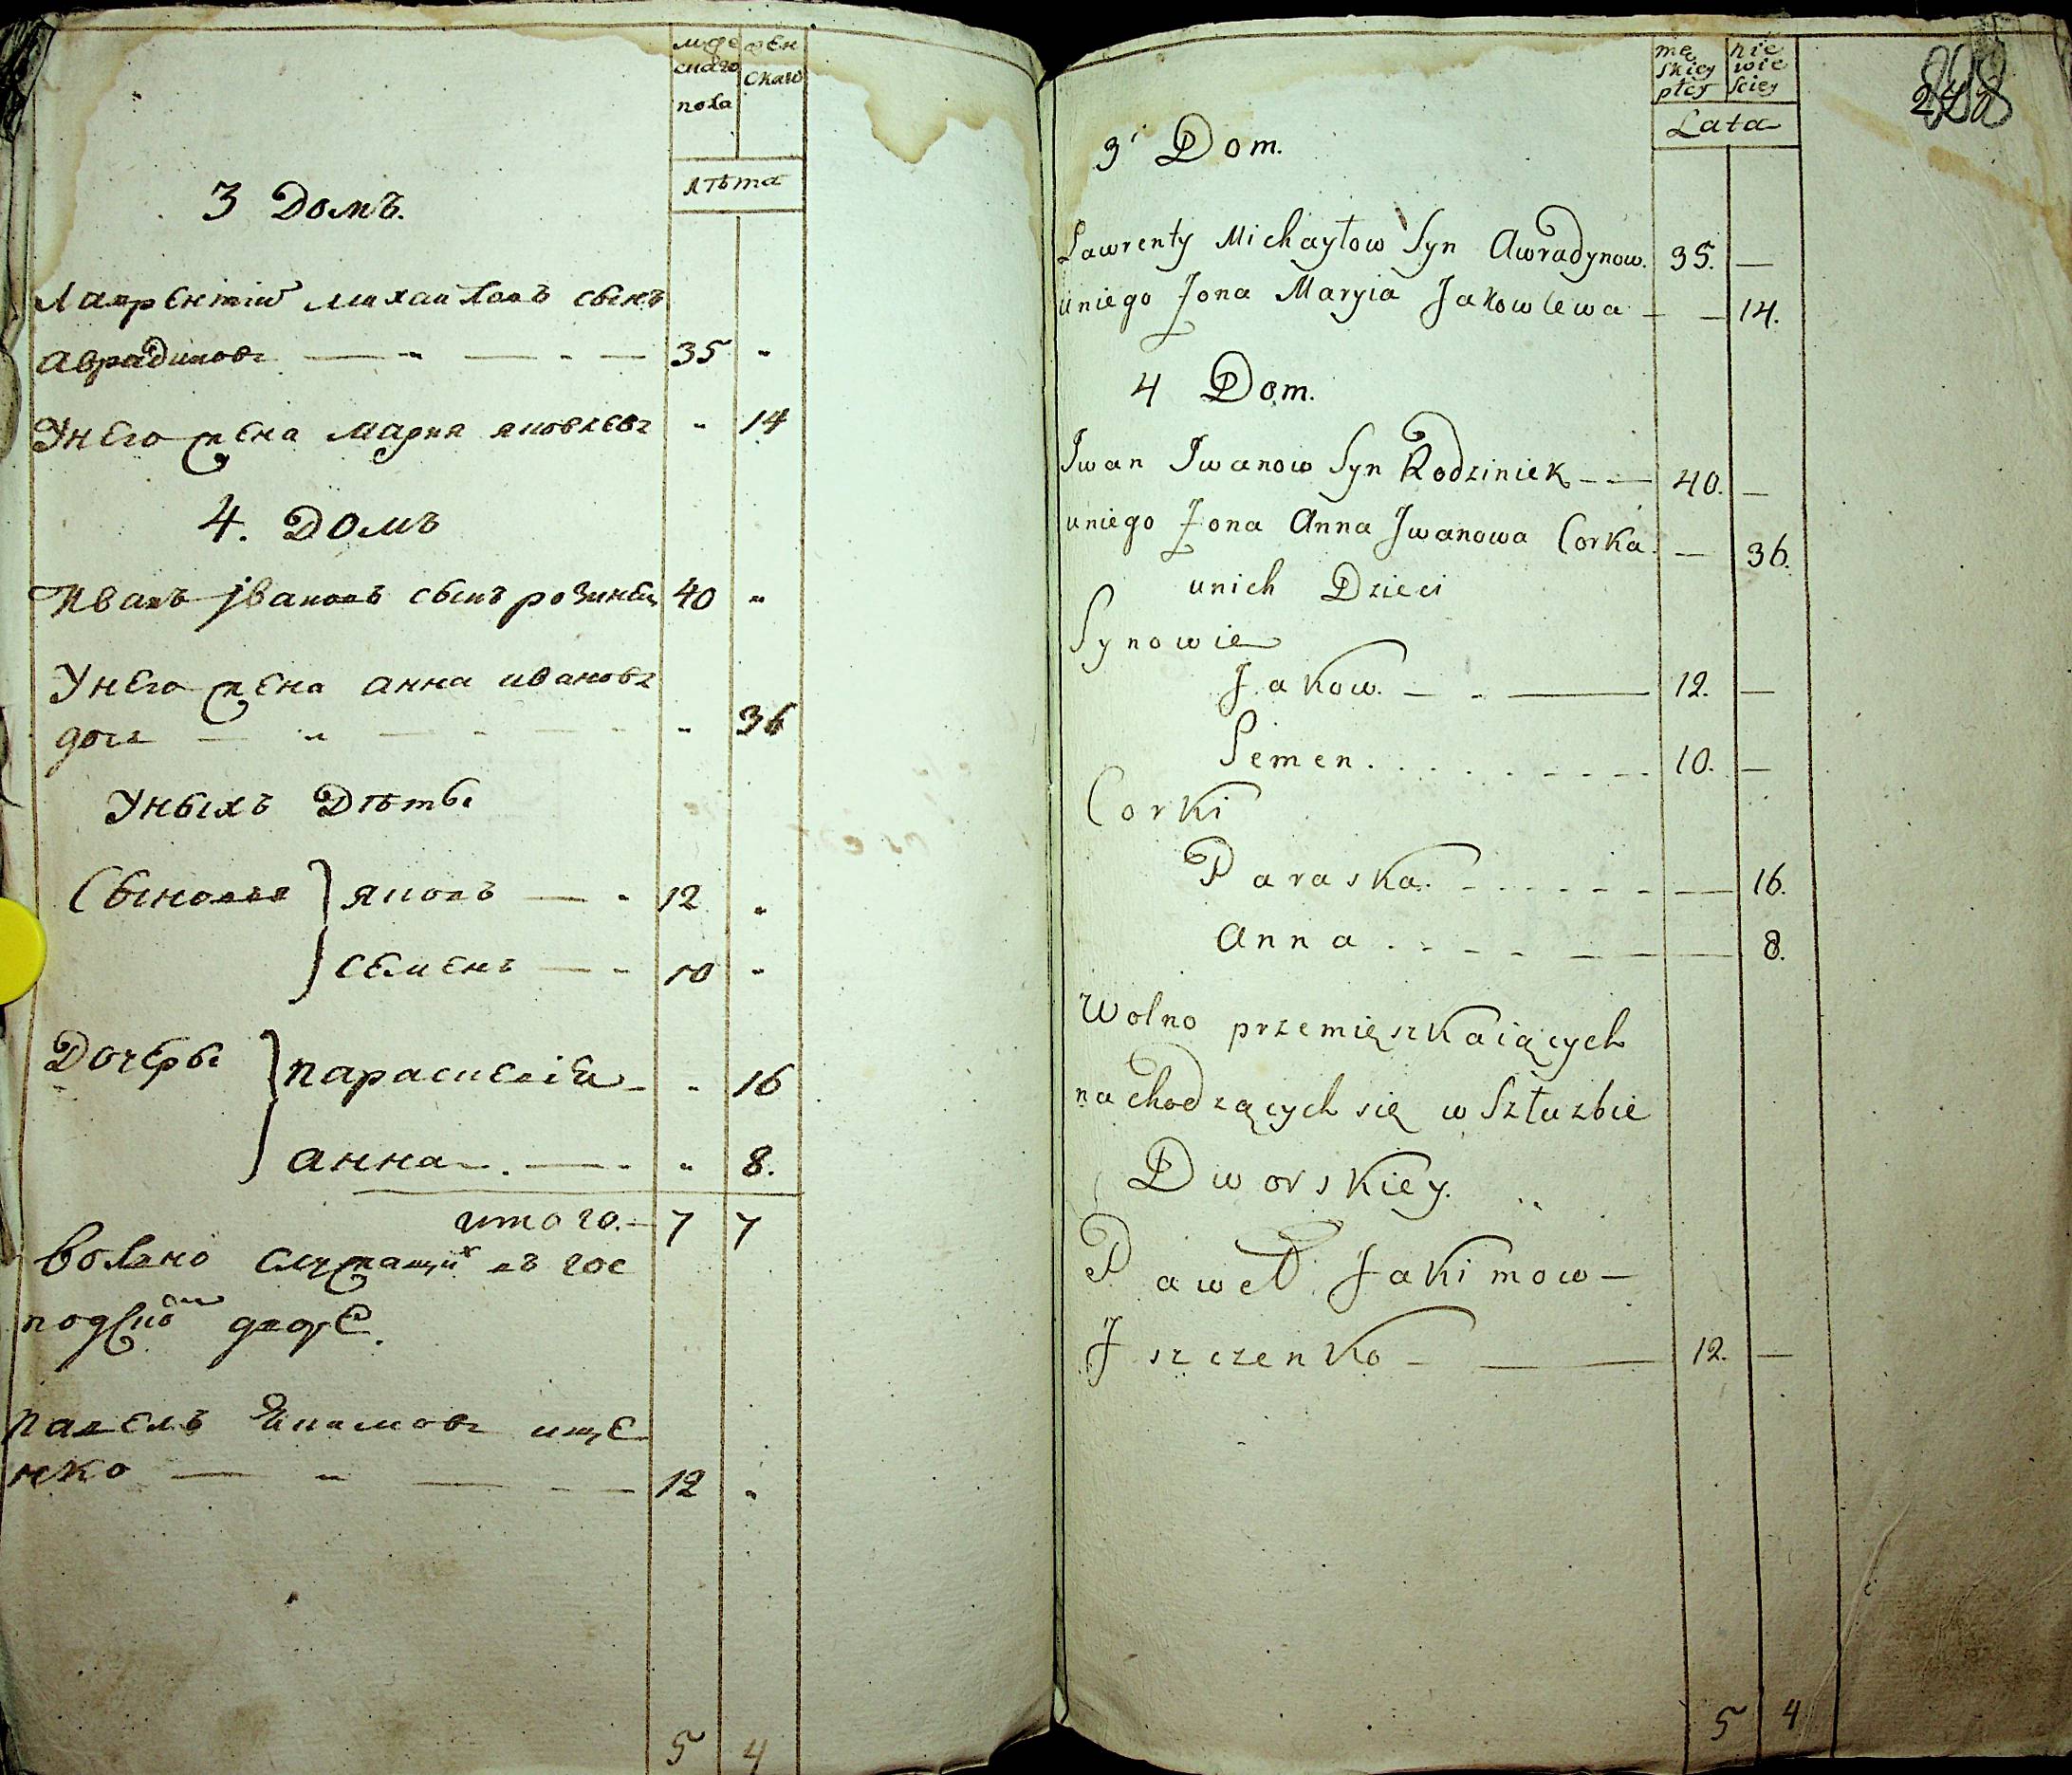 муже
скаго
пола
жен
скаго
лѣта
3 Домъ.
Лаврентій михаиловъ сынъ
аврадиновъ — „ — - — 35 „
Унего жена мария яковлевъ „ 14
4. Домъ
Иванъ івановъ сынъ розинец 40 „
Унего жена анна ивановъ
доч — „ — - — - „ 36
Уныхъ Дѣты
Сыновя } яковъ — - 12 „
семенъ — - 10 „
Дочеры } параскевія - „ 16
анна . — - „ 8.
итого. — 7 7
волно служащих въ гос
подской дворе.
павелъ Якимовъ ище
нко — „ — — 12 „
5 4
mę
skiey
płcy
nie
wie
sciey
Lata
248
3 Dom.
Lawrenty Michayłow Syn Awradynow. 35. —
uniego Żona Maryia Jakowlewa - — 14.
4 Dom.
Jwan Jwanow Syn Rodziniek - — 40. —
uniego Żona Anna Jwanowa Corka. — 36.
unich Dzieci
Synowie
Jakow. — - — 12. —
Semen. . . . . - - - - 10. —
Corki
Paraska. - - - - - - — 16.
Anna . - - - — — — 8.
Wolno przemięszkaiących
nachodzących się w Szłuzbie
Dworskiey.
Paweł Jakimow —
Jszczenko - — 12. —
5 4